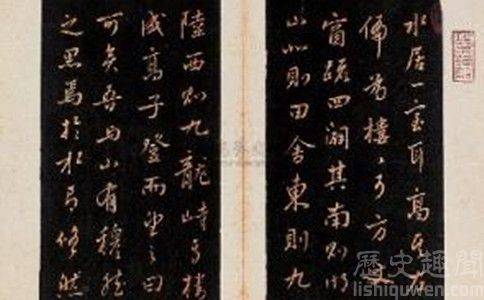 水居一室耳高其左
偏為樓〻可方丈
窗疏四闢其南則湖
山北則田舍東則九
陸西則九龍峙焉樓
成高子登而望之曰
可矣吾於山有穆然
之思焉於水有悠然
歷史趣聞
lishiquwen.com